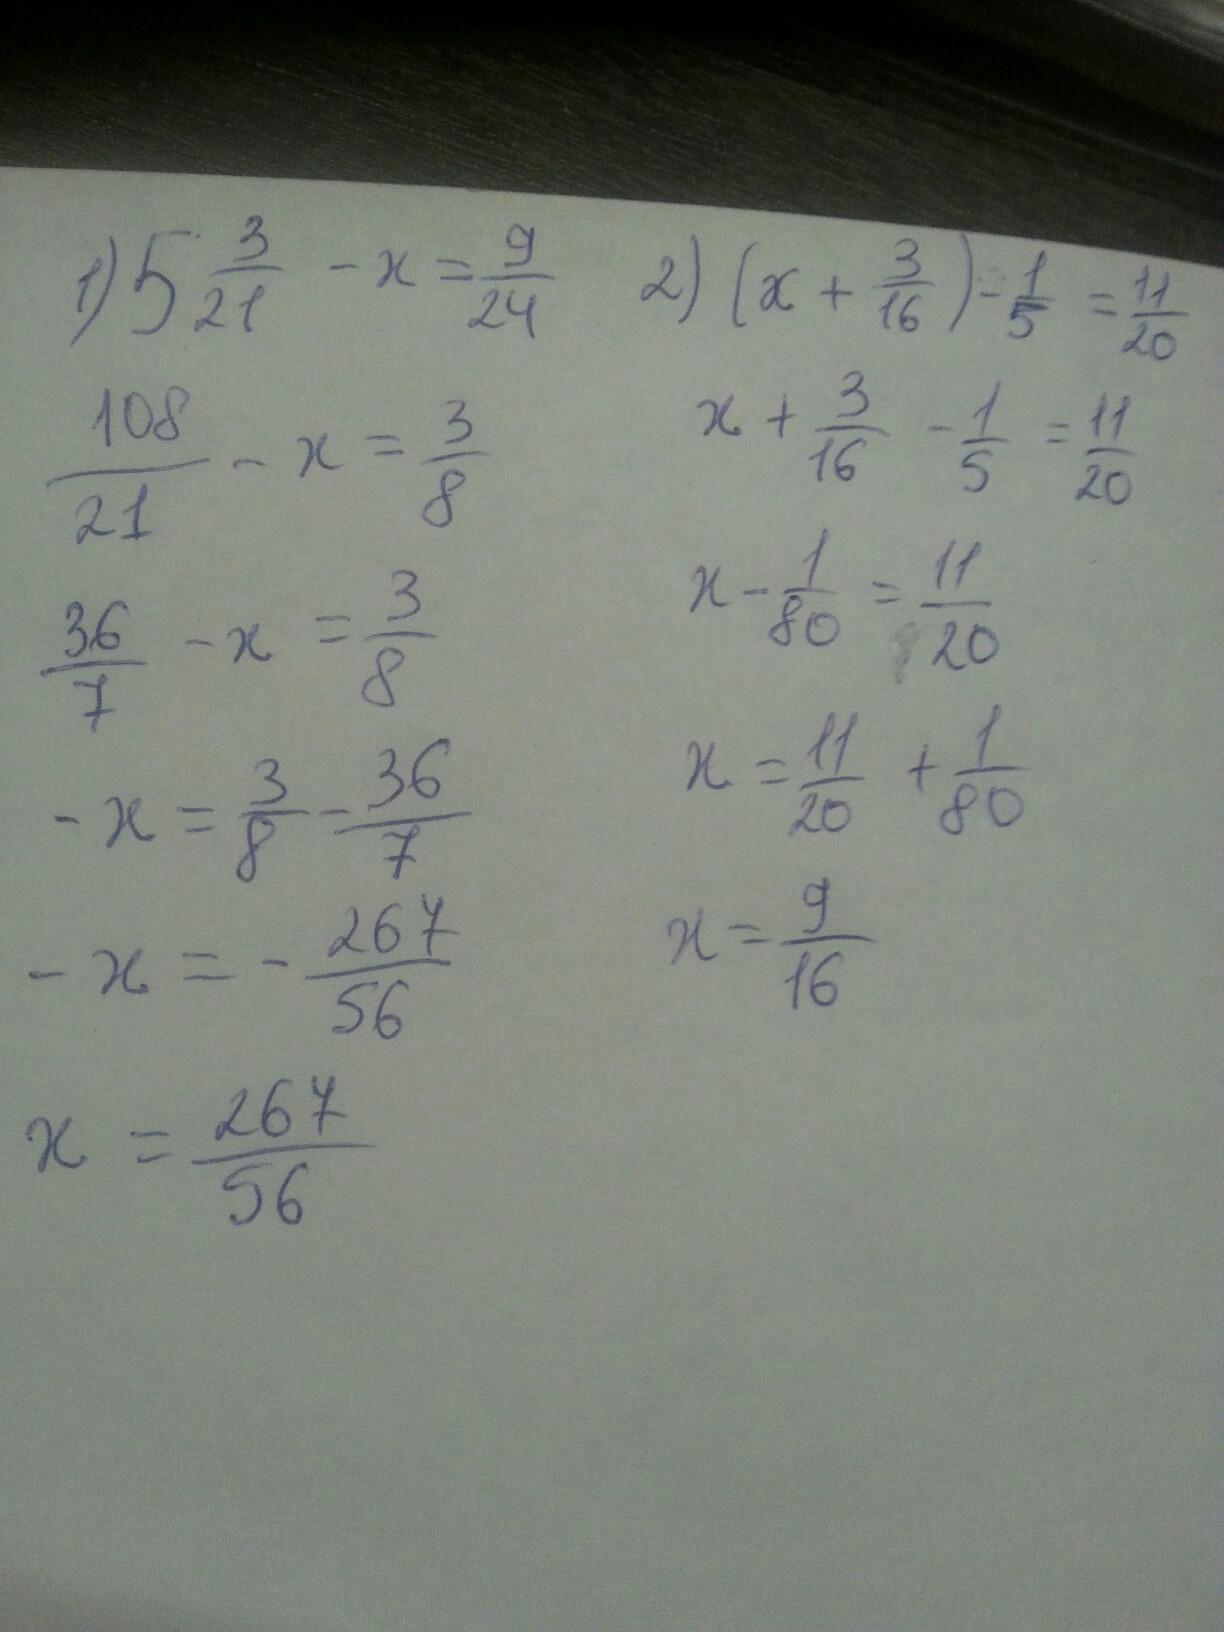 1) 5 3/21 - x = 9/24
108/21 - x = 3/8
36/7 - x = 3/8
- x = 3/8 - 36/7
- x = - 267/56
x = 267/56
2) (x + 3/16) - 1/5 = 11/20
x + 3/16 - 1/5 = 11/20
x - 1/80 = 11/20
x = 11/20 + 1/80
x = 9/16